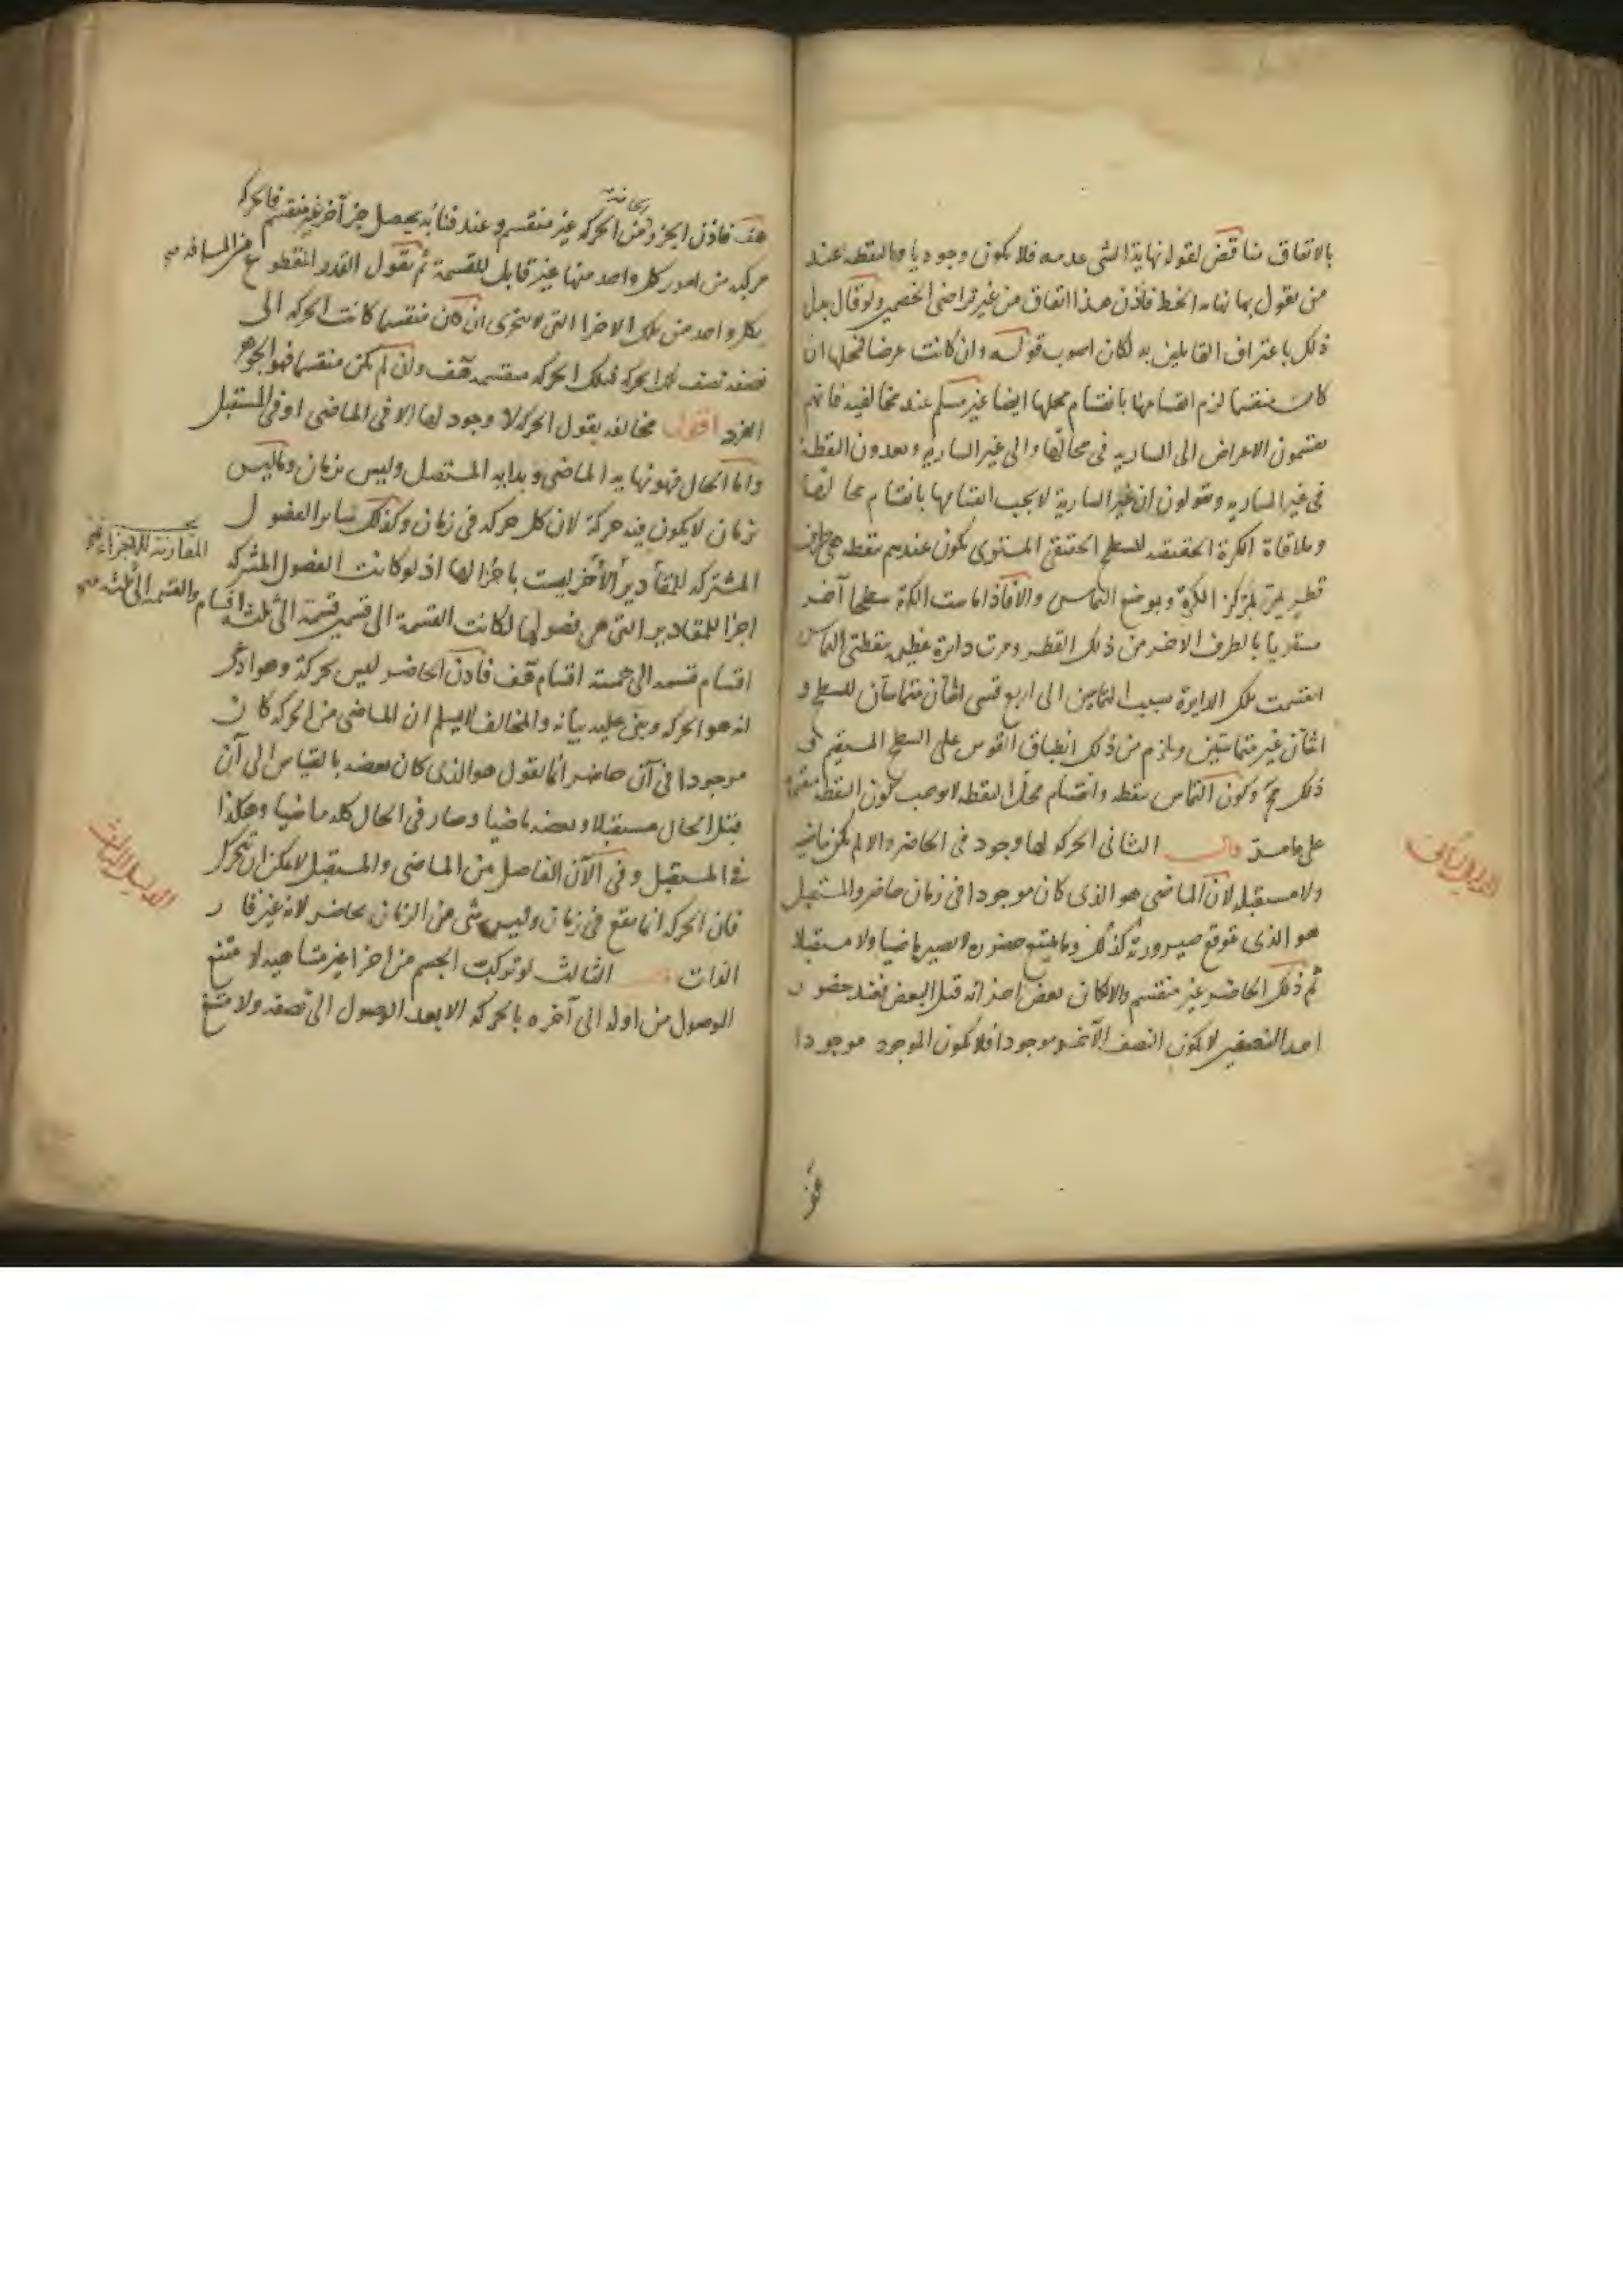 بالاتفاق مناقض لقوله نهاية الشى عدمه فلا يكون وجوديا والنقطه عند
من يقول بها نهايه الخط فاذن هذا اتفاق من غير تراضى الخصمين ولو قال بدل
ذلك باعتراف القايلين به لكان اصوب قوله وان كانت عرضا فمحلها ان
كان منقسما لزم انقسامها بانقسام محلها ايضا غير مسلم عند مخالفيه فانهم
يقسمون الاعراض الى الساريه فى محالها والى غير الساريه ويعدون النقطة
فى غير الساريه ويقولون ان غير السارية لا يجب انقسامها بانقسام محالها
وملاقاة الكرة الحقيقيه للسطح الحقيقى المستوى يكون عندهم بنقطه هى طرف
قطر يمر بمركز الكرة وبموضع التماس والا فاذا ماست الكرة سطحا آخر
مستويا بالطرف الاخر من ذلك القطر ومرت دائرة عظيمه بنقطتى التماس
انقسمت تلك الدايرة بسبب التماسين الى اربع قسى اثنان متماستان للسطح و
اثنان غير متماستين ويلزم من ذلك انطباق القوس على السطح المستقيم و
ذلك مح وكون التماس بنقطه وانقسام محل النقطه لا يوجب كون النقطه منقسمة
على ما مر قال الثانى الحركه لها وجود فى الحاضر والا لم يكن ماضيه
ولا مستقبله لان الماضى هو الذى كان موجودا فى زمان حاضر والمستقبل
هو الذى يتوقع صيرورته كذلك وما يمتنع حضوره لا يصير ماضيا ولا مستقبلا
ثم ذلك الحاضر غير منقسم والا لكان بعض اجزائه قبل البعض فعند حضور
احد النصفين لا يكون النصف الآخر موجودا فلا يكون الموجود موجودا
الدليل الثانى
هف فاذن الجزء من الحركه غير منقسم وعند فنائه يحصل جزء آخر غير منقسم فالحركه
الحاضر
مركبه من امور كل واحد منها غير قابل للقسمة ثم نقول القدر المقطوع من المسافه صح
بكل واحد من تلك الاجزا التى لا يتجزى ان كان منقسما كانت الحركه الى
نصفه نصف تلك الحركه فتلك الحركه منقسمه هف وان لم يكن منقسما فهو الجوهر
الفرد اقول مخالفه يقول الحركه لا وجود لها الا فى الماضى او فى المستقبل
واما الحال فهو نهايه الماضى وبدايه المستقبل وليس بزمان وما ليس
بزمان لا يكون فيه حركة لان كل حركه فى زمان وكذلك سائر الفصول
المشتركه للمقادير الاخر ليست باجزا لها اذ لو كانت الفصول المشتركه
اجزا للمقادير التى هى فصولها لكانت القسمة الى قسمين قسمة الى ثلثه اقسام والقسمه الى ثلثه صح
اقسام قسمه الى خمسة اقسام هف فاذن الحاضر ليس بحركة وهو ادعى
انه هو الحركه وبنى عليه بيانه والمخالف لا يسلم ان الماضى من الحركه كان
موجودا فى آن حاضر انما يقول هو الذى كان بعضه بالقياس الى آن
قبل الحال مستقبلا وبعضه ماضيا وصار فى الحال كله ماضيا وهكذا
فى المستقبل وفى الآن الفاصل من الماضى والمستقبل لا يمكن ان يتحرك
فان الحركه انما تقع فى زمان وليس شى من الزمان بحاضر لانه غير قار
الذات قال الثالث لو تركبت الجسم من اجزا غير متناهيه لامتنع
الوصول من اوله الى آخره بالحركه الا بعد الوصول الى نصفه ولامتنع
الدليل الثالث